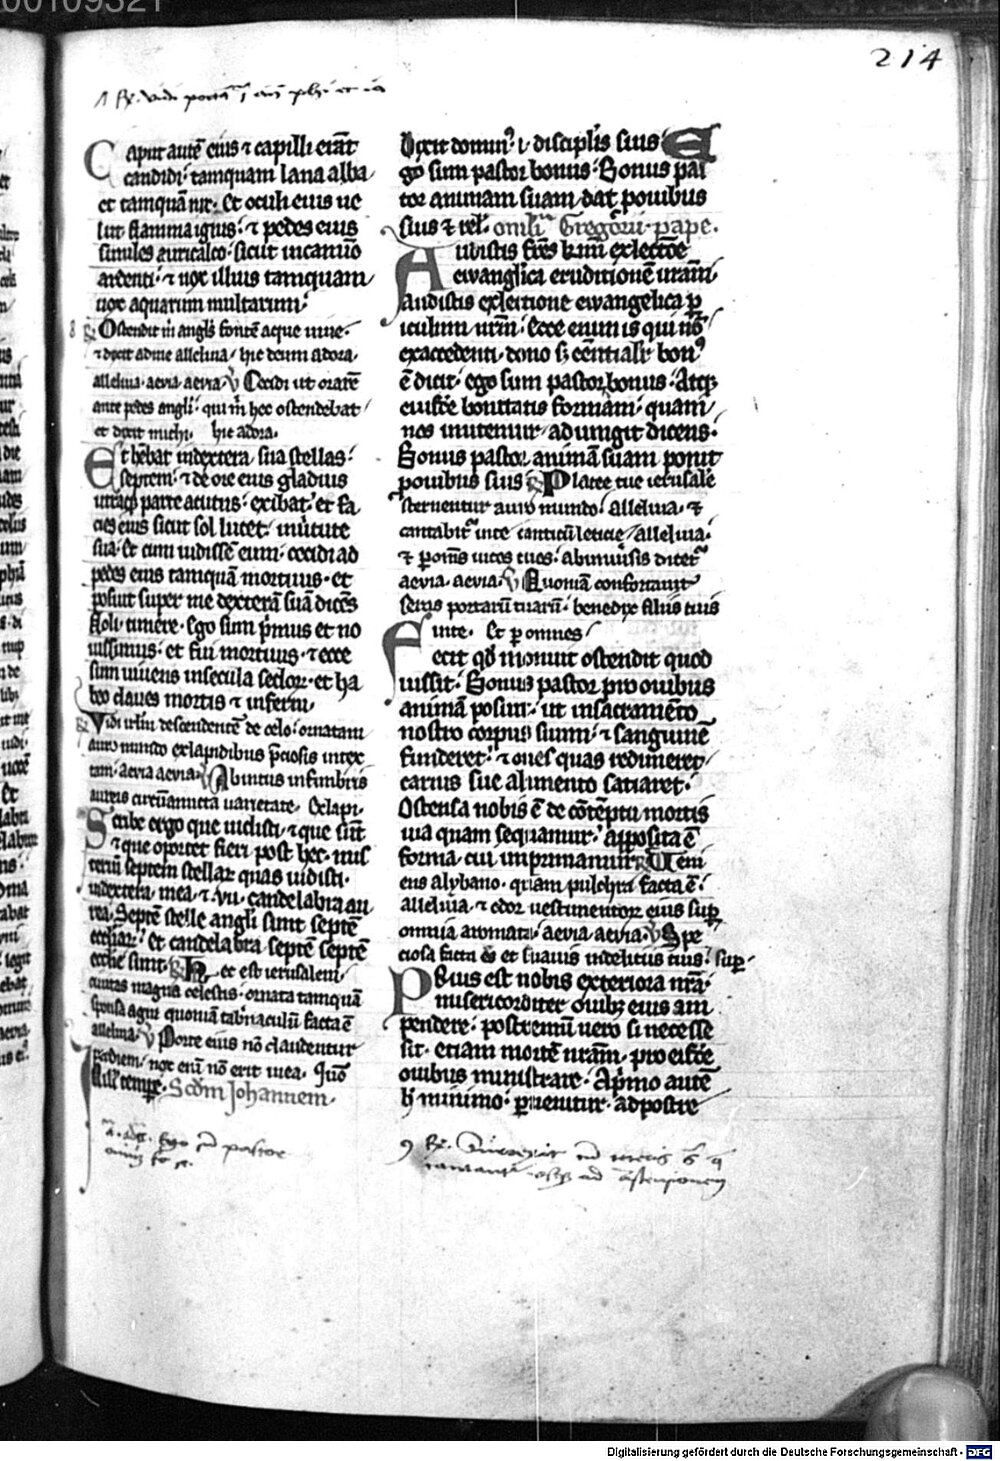 00109321
214
Caput autē eius ⁊ capilli erāt
candidi· tamquam lana alba
et tamquā nix· Et oculi eius ue
lut flamma ignis· ⁊ pedes eius
similes auricalco· sicut in camino
ardenti· ⁊ uox illius tamquam
uox aquarum multarum·
Ostendit m̄ angłs fontē aque uiue·
⁊ dixit ad me alleluia· hic deum adora·
alleluia· aevia aevia· ℣ Cecidi ut orarē
ante pedes angli· qui m̄ hec ostendebat
et dixit michi· hic adora·
Et hēbat in dextera sua stellas·
septem· ⁊ de ore eius gladius
utraq; parte acutus· exibat· et fa
cies eius sicut sol lucet· in uirtute
sua· Et cum uidissē eum· cecidi ad
pedes eius tamquā mortuus· et
posuit super me dexterā suā dicēs
Noli timere· Ego sum p̄mus et no
uissimus· et fui mortuus· ⁊ ecce
sum uiuens in secula sclo⁊· et ha
beo claues mortis ⁊ inferni·
Vidi irlm̄ descendentē de celo· ornatam
auro mundo ex lapidibus p̄ciosis intex
tam· aevia aevia· ℣ Ab intus in fimbriis
aureis circūamicta uarietate· Ex lapi·
Scribe ergo que uidisti· ⁊ que sūt
⁊ que oportet fieri post hec· mis
terium septem stella⁊ quas uidisti·
in dextera mea· ⁊ ·vii· candelabra au
rea· Septē stelle angli sunt septē
ecclia⁊· et candelabra septē septē
ecclie sunt· ℟ Hec est ierusalem·
ciuitas magna celestis· ornata tamquā
sponsa agni quoniā tab̄naculū facta ē
allelua· ℣ Porte eius nō claudentur
per diem· nox eni nō erit in ea· Quō
In ill' tempre· Scdm Johannem·
Dixit domin⁹ i· discipłis suis E
go sum pastor bonus· Bonus pas
tor animam suam dat pro ouibus
suis ⁊ rel'· omil̄ia Gregorii pape·
Audistis frēs kmi ex lectōe
ewanglica eruditionē uram·
audistis ex lectione ewangelica p
iculum urm̄· Ecce enim is qui nō
ex accedenti dono s; cēntialr bon⁹
ē dicit· ego sum pastor bonus· Atq;
eiusdē bonitatis formam· quam
nos imitemur· adiungit dicens·
Bonus pastor animā suam ponit
pro ouibus suis ℟ Platee tue ierusalē
sternentur auro mundo· allelua· ⁊
cantabit' in te canticū leticie· allelua·
⁊ p om̄s uicos tuos· ab uniūsis dicet'
aevia· aevia· ℣ Quoniā confortauit
seras portarū tuarū· benedixit filiis tuis
in te· Et p omnes
Fecit qd monuit ostendit quod
iussit· Bonus pastor pro ouibus
animā posuit· ut in sacramēto
nostro corpus suum· ⁊ sanguinē
funderet· ⁊ oues quas redimeret
carnis sue alimento satiaret·
Ostensa nobis ē de cōtēptu mortis
uia quam sequamur· apposita ē
forma cui imprimamur· ℟ Veni
ens a lybano· quam pulchra facta ē·
alleluia· ⁊ odor uestimento⁊ eius sup
omnia aromata· aevia aevia· ℣ Spe
ciosa facta es et suauis in deliciis tuis· sup·
Prius est nobis exteriora nra·
misericorditer ouib; eius im
pendere· postremū uero si necesse
sit· etiam mortē nram· pro eisdē
ouibus ministrare· A p̄mo autē
h minimo· puenitur· ad postre
a· adp̄· Ego sū pastor
℟
Digitalisierung gefördert durch die Deutsche Forschungsgemeinschaft - DFG